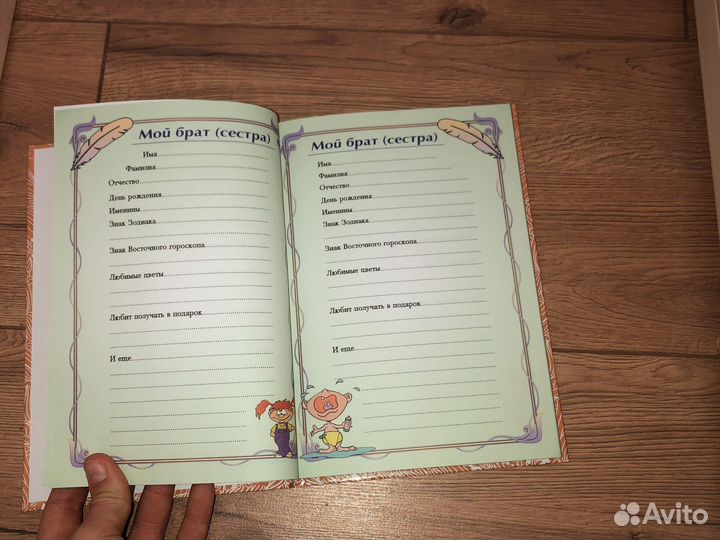 Мой брат (сестра)
Имя
Фамилия
Отчество
День рождения
Именины
Знак Зодиака
Знак Восточного гороскопа
Любимые цветы
Любит получать в подарок
И еще
Мой брат (сестра)
Имя
Фамилия
Отчество
День рождения
Именины
Знак Зодиака
Знак Восточного гороскопа
Любимые цветы
Любит получать в подарок
И еще
Avito